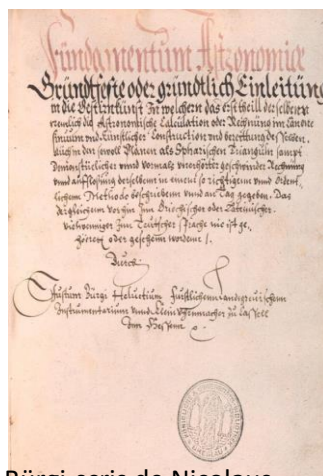 Fundamentum Astronomiæ
Gründtfeste oder gründtlich Einleitung
in die Gestirnkunst In welchem das erst theill derselben
die Astronomische Calculation oder Rechnung im Canone
Sinuum und künstlicher Construction und bereittung desselben.
auch in den sowoll Planen als Spharischen Triangulis sampt
vnd vormals vnerhörter geschwinder Rechnung
vnd aufflösung derselbenn in einem so richtigem vnnd
lichem Methodo beschriebenn vnnd an Tag gegeben. Das
dergleichenn vorhin Inn Griechischer oder Latinischer.
vielweniger Inn Teutscher sprache nie ist ge,
höret oder gesehenn wordenn.
Durch
Jüstum Bürgi Helvetium Fürstlichenn Landgrevischenn
Instrumentarium vnnd Uhrenmacher zu Cassell
Inn Hessenn
Bürgi scris de Nicolaus